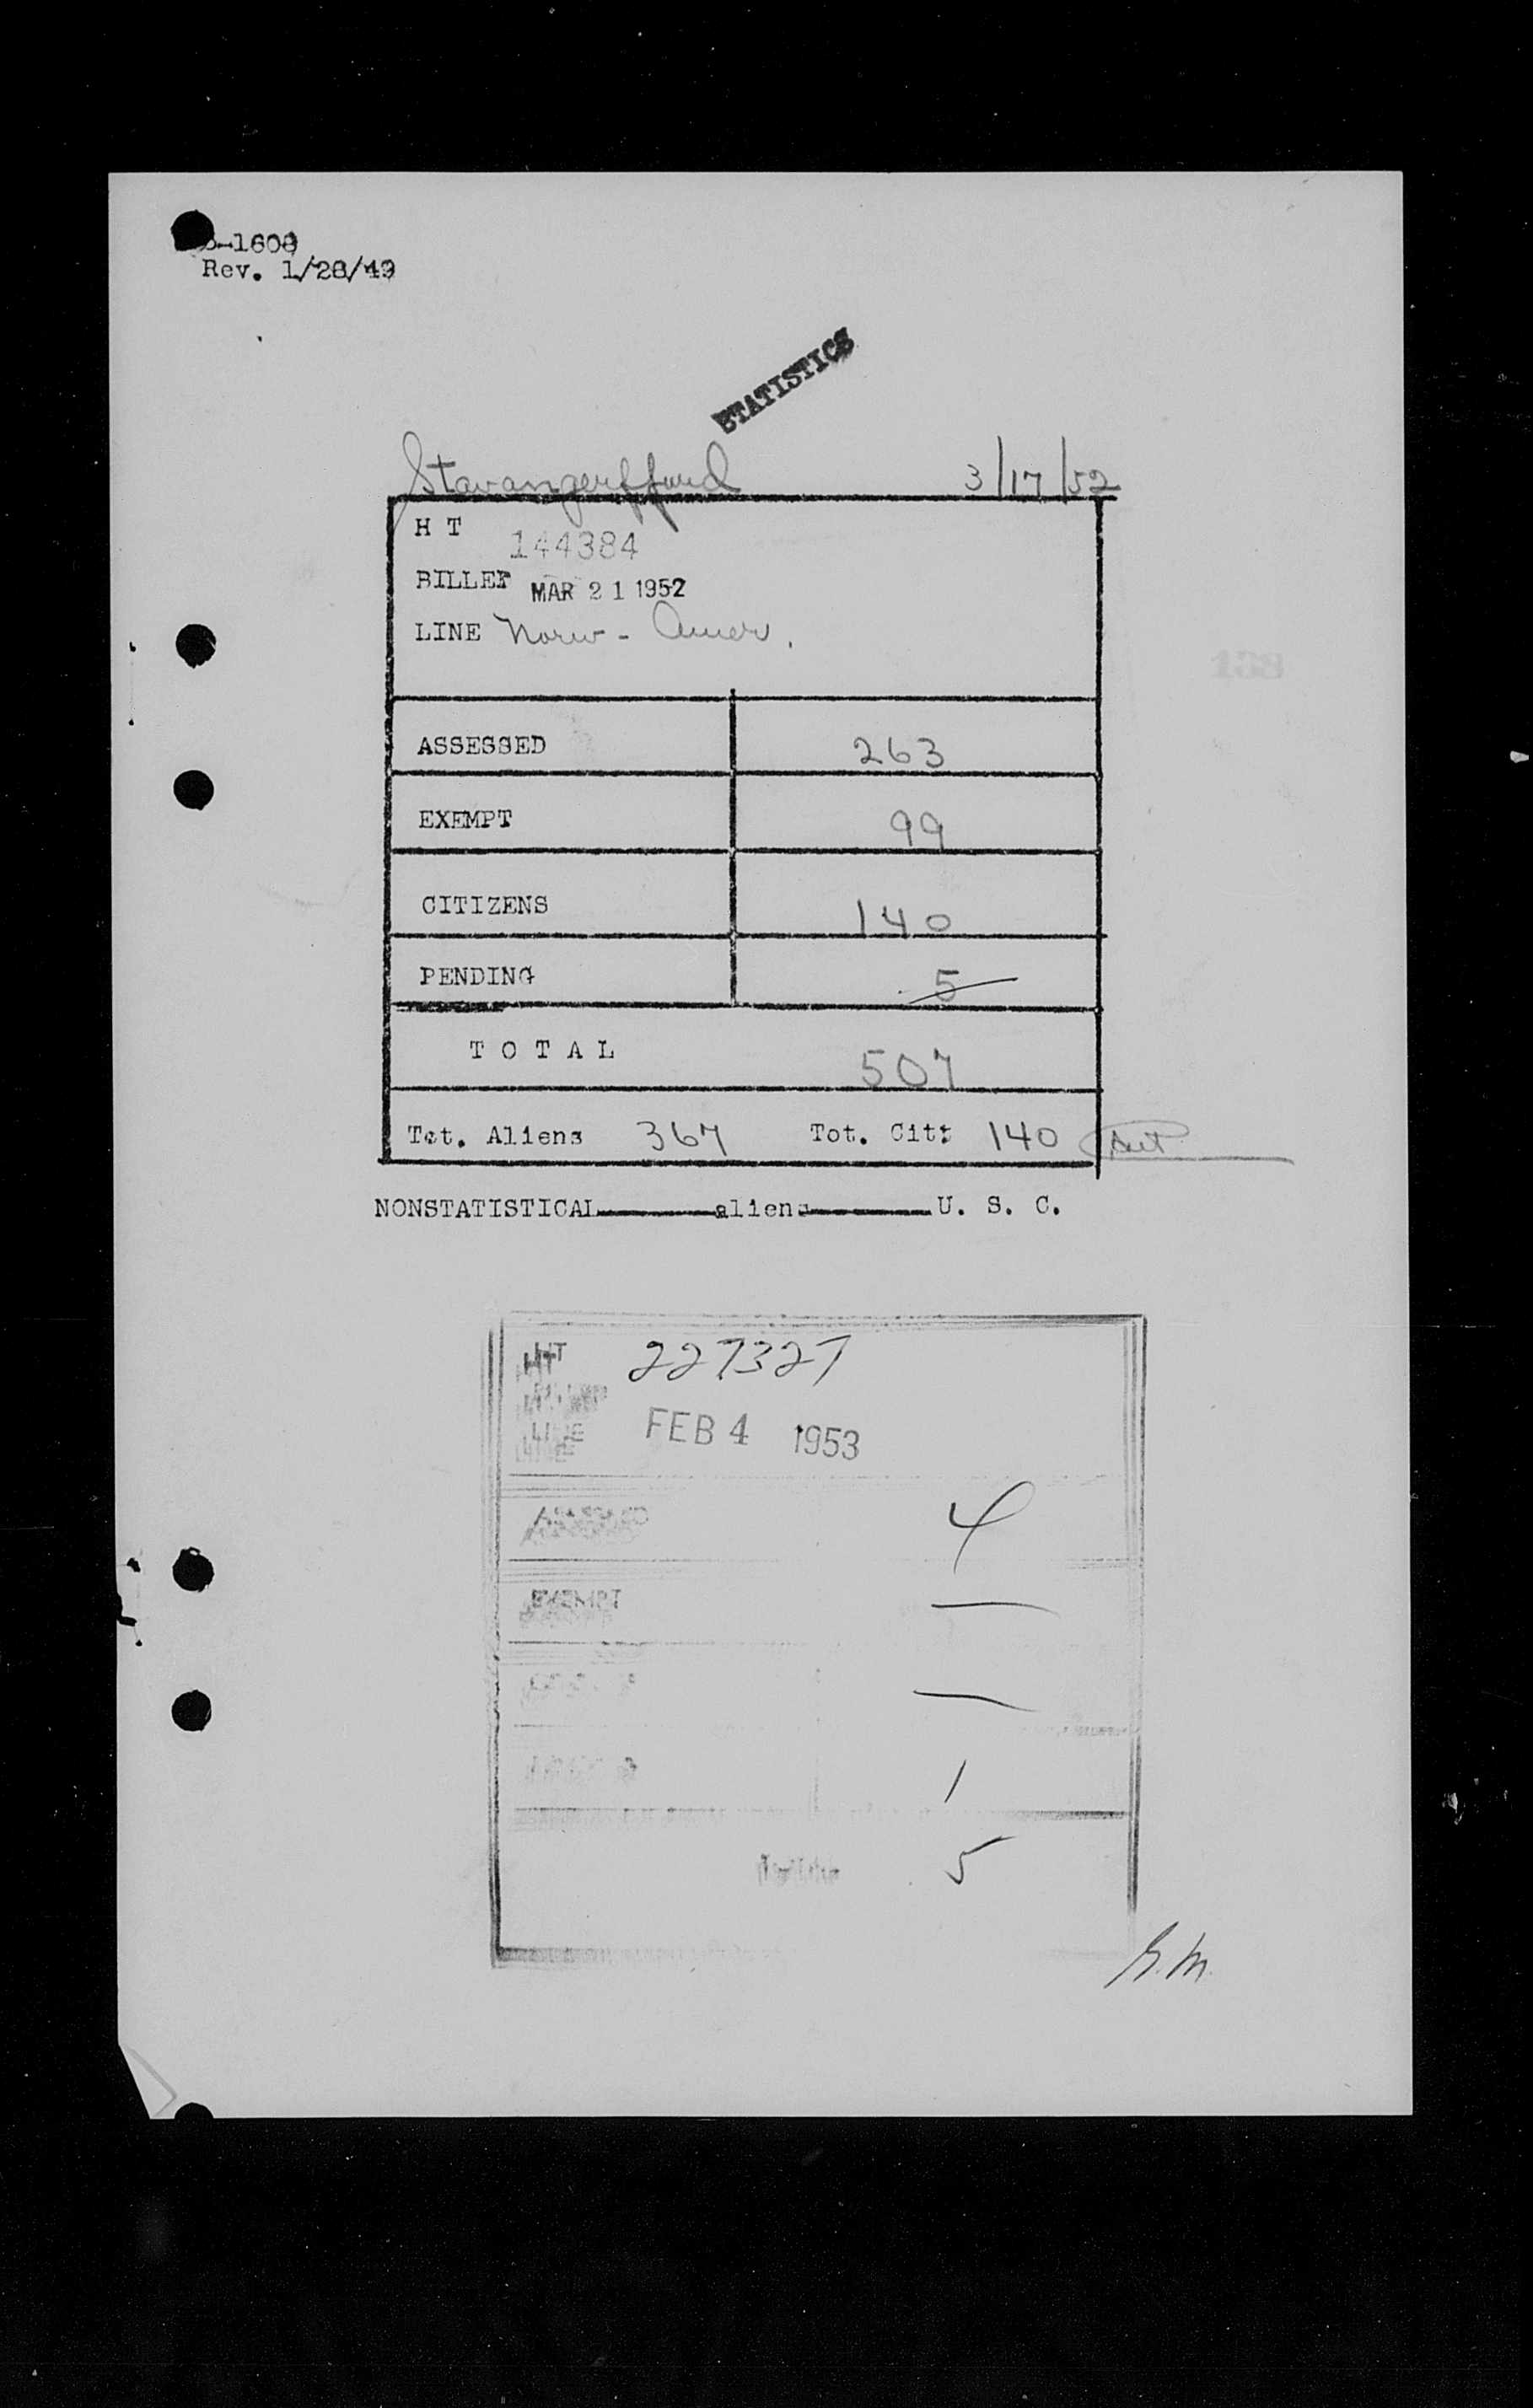 -1608
Rev. 1/28/49
STATISTICS
Stavangerfjord 3/17/52
H T 144384
BILLED MAR 21 1952
LINE Norw - Amer.
138
ASSESSED 263
EXEMPT 99
CITIZENS 140
PENDING 5
T O T A L 507
Tot. Aliens 367 Tot. Cit: 140
NONSTATISTICAL aliens U. S. C.
HT 227327
LINE FEB 4 1953
ASSESSED 4
EXEMPT —
—
1
5